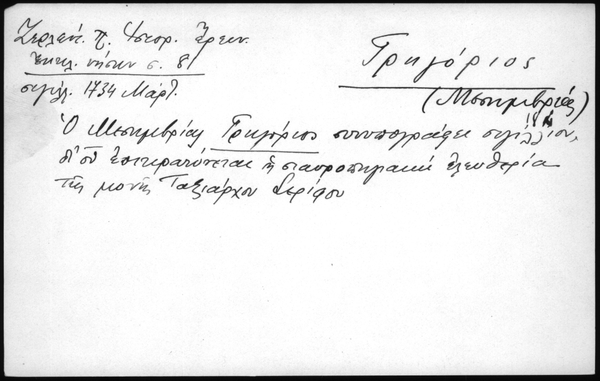 Ζερλέντ. Π. Ἱστορ. Ἔρευν.
Ἐκκλ. νήσων σ. 81
σιγίλ. 1734 Μάρτ.
Γρηγόριος
(Μεσημβρίας)
Ὁ Μεσημβρίας Γρηγόριος συνυπογράφει σιγίλλιον,
δι' οὗ ἐπικρατύνεται ἡ σταυροπηγιακὴ ἐλευθερία
τῆς μονῆς Ταξιάρχου Σερίφου